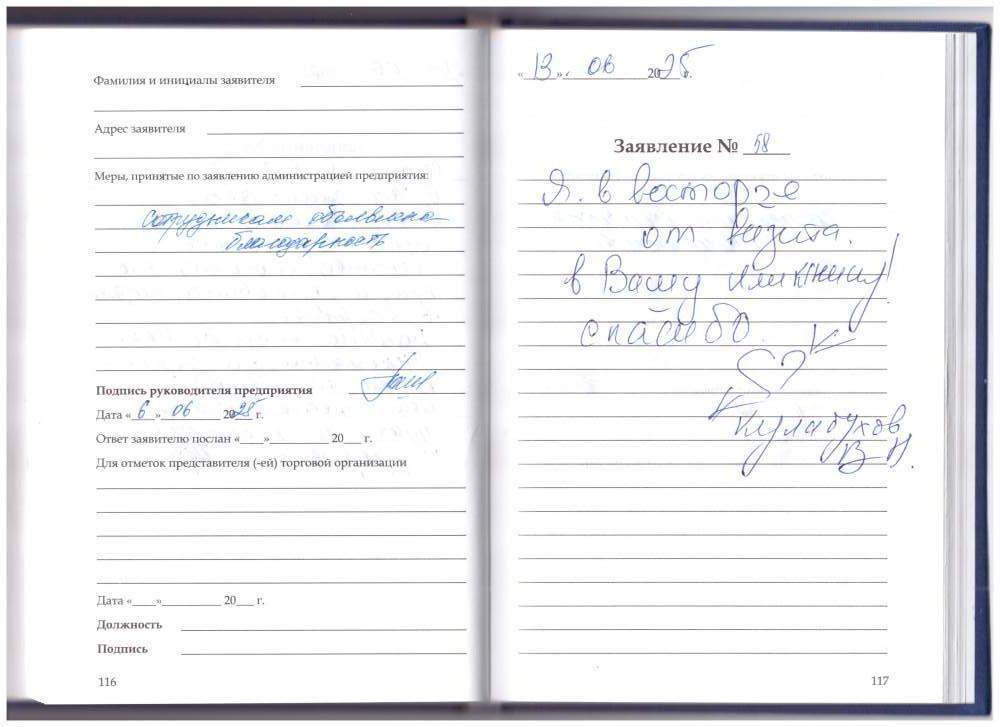 Фамилия и инициалы заявителя
Адрес заявителя
Меры, принятые по заявлению администрацией предприятия:
Сотрудникам объявлена
благодарность
Подпись руководителя предприятия
Дата «6» 06 2025 г.
Ответ заявителю послан «____»__________ 20___ г.
Для отметок представителя (-ей) торговой организации
Дата «____»__________ 20___ г.
Должность
Подпись
116
«13» 06 2025 г.
Заявление № 58
Я в восторге
от визита
в Вашу клинику!
спасибо.
Кулабухов
В Н.
117